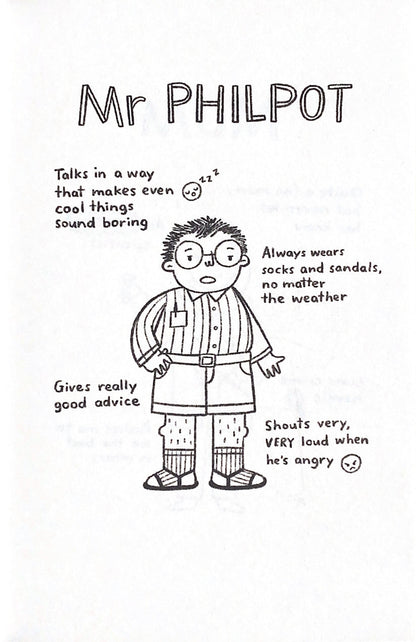 Mr PHILPOT
Talks in a way
that makes even
cool things
sound boring
zzz
Always wears
socks and sandals,
no matter
the weather
Gives really
good advice
Shouts very,
VERY loud when
he's angry